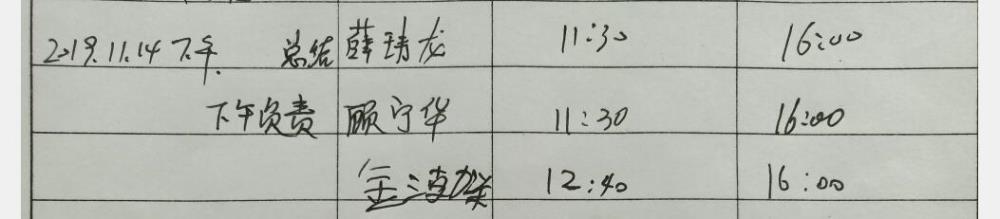 2019.11.14 下午 总结 薛靖龙 11:30 16:00
下午负责 顾宁华 11:30 16:00
12:40 16:00